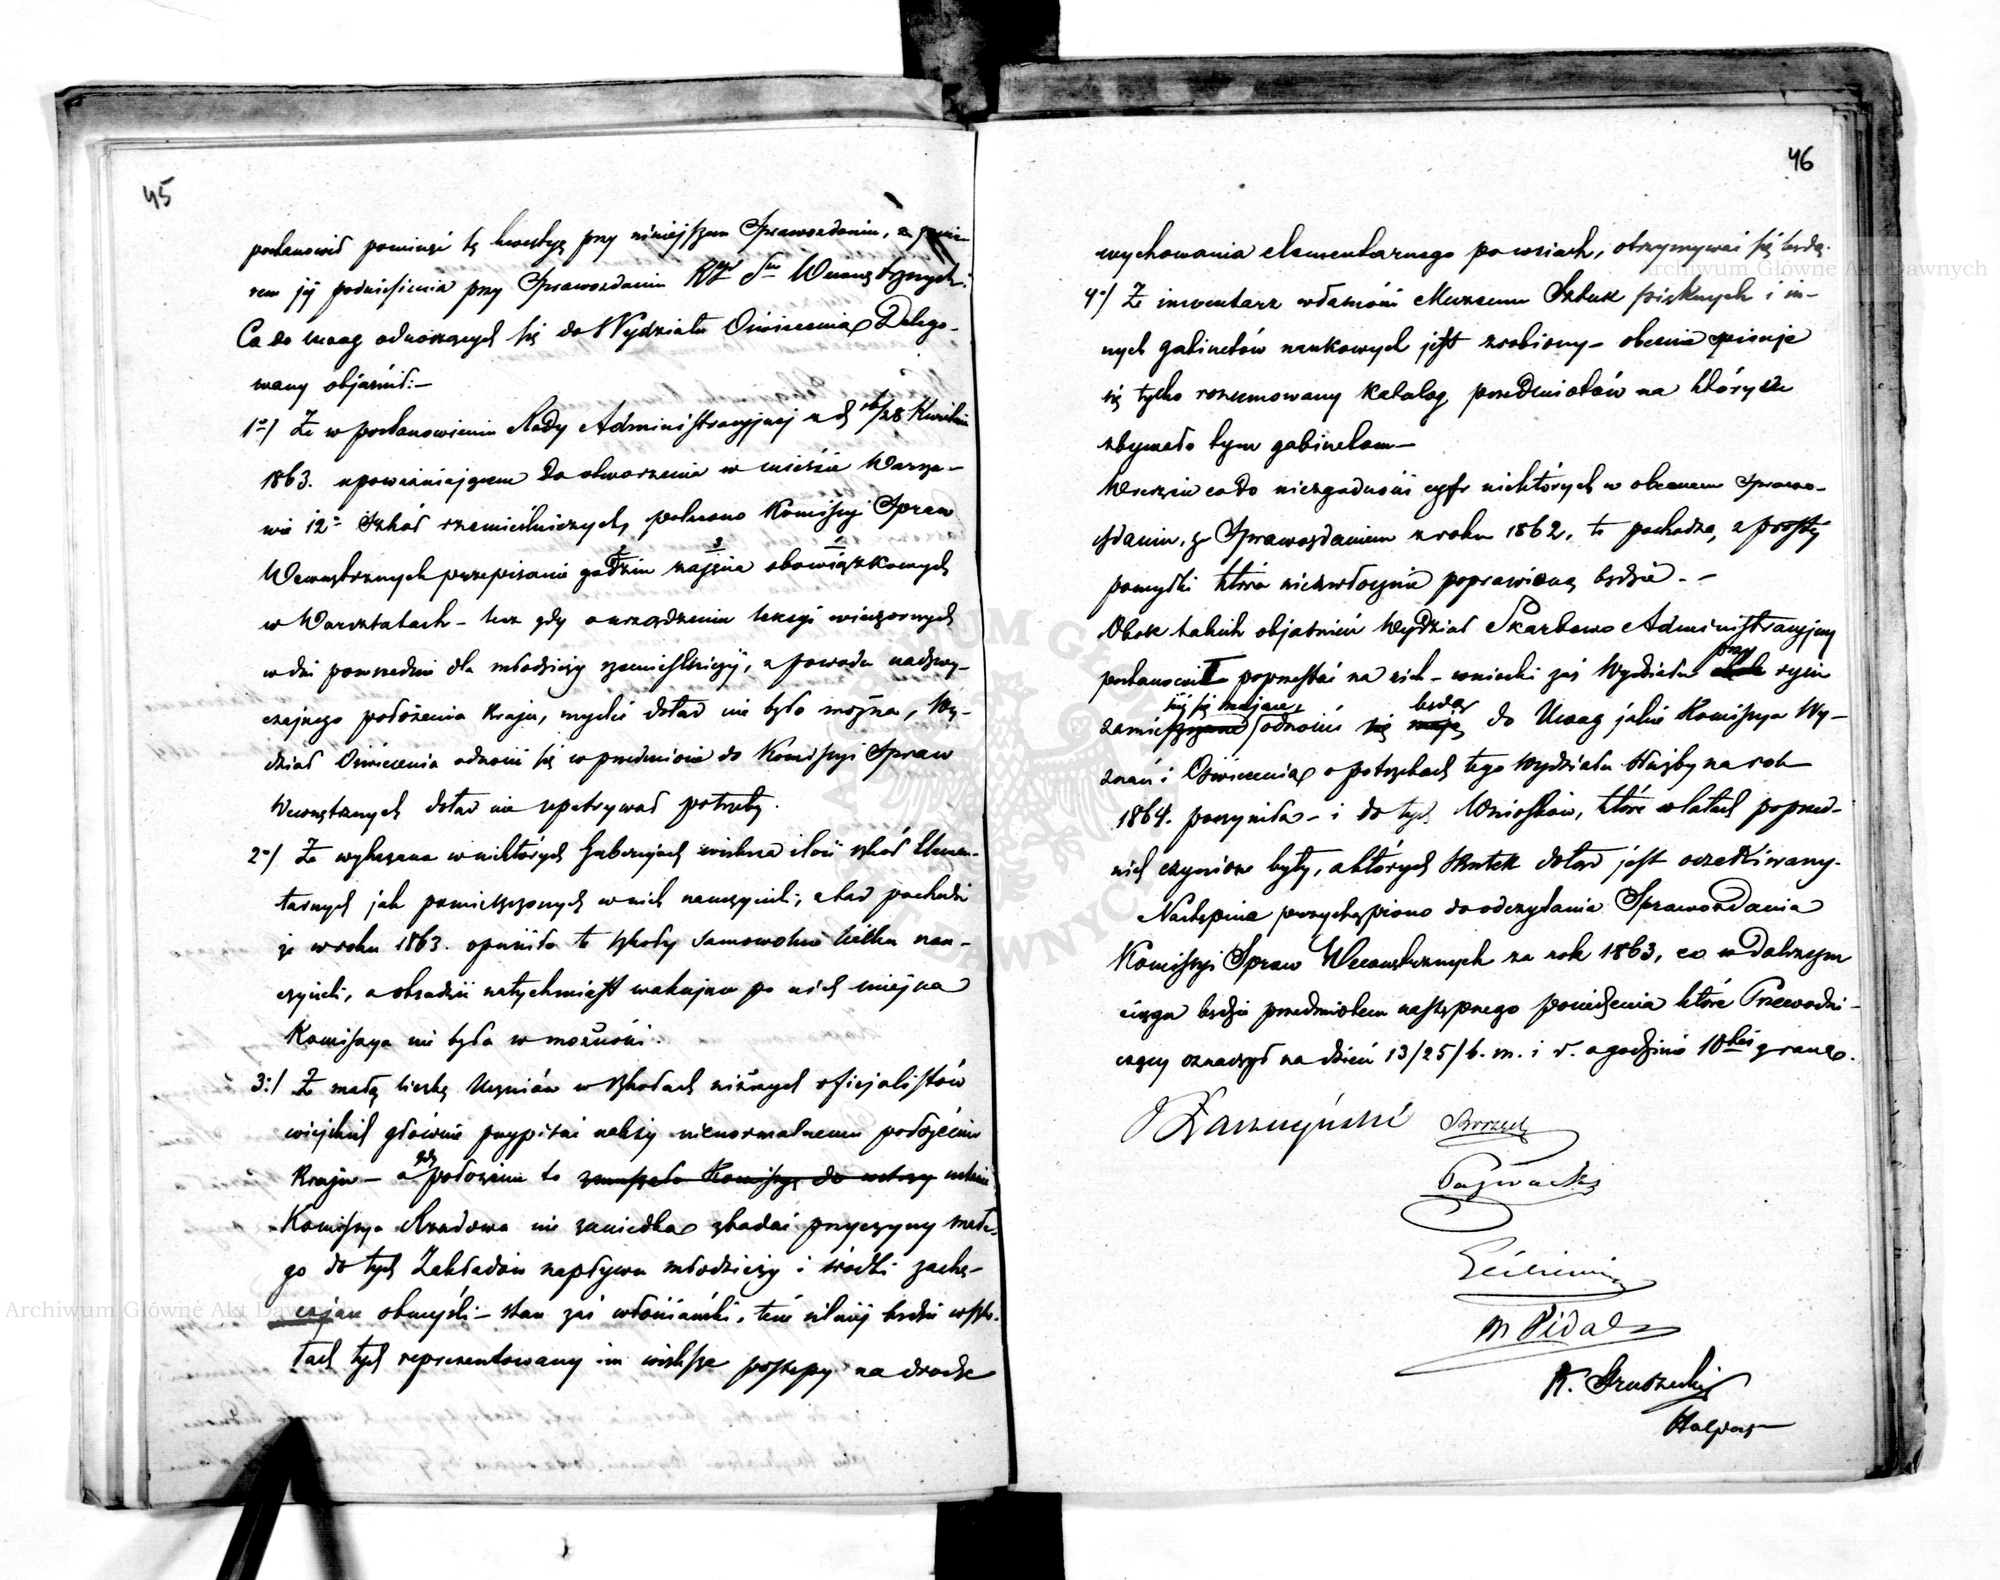 45
postanowił pominąć tę kwestyę przy niniejszem Sprawozdaniu, a
rem jej podniesienia przy Sprawozdaniu Wewnętrznych.
Co do uwag odnoszących się do Wydziału Oświecenia Delego-
wany objaśnił:—
1o/ Że w postanowieniu Rady Administracyjnej z d. 16/28 Kwietnia
1863. upoważniającem do otworzenia w mieście Warsza-
wie 12u Szkół rzemieślniczych, polecono Komissyi Spraw
Wewnętrznych przepisanie godzin zajęcia obowiązkowych
w Warsztatach – lecz gdy o urządzeniu lekcyi wieczornych
w dni powszednie dla młodzieży rzemieślniczej, z powodu nadzwy-
czajnego położenia Kraju, myśleć dotąd nie było można, Wy-
dział Oświecenia odnosić się w przedmiocie do Komissyi Spraw
Wewnętrznych dotąd nie upatrywał potrzeby.
2o/ Że wykazana w niektórych Guberniach większa ilość szkół Elemen-
tarnych jak pomieszczonych w nich nauczycieli, ztąd pochodzi
że w roku 1863. opuściło te szkoły samowolnie kilku nau-
czycieli, a obsadzić natychmiast wakujące po nich miejsca
Komissya nie była w możności.
3o/ Że małą liczbę Uczniów w szkołach niższych oficjalistów
wiejskich głównie przypisać należy nienormalnemu położeniu
Kraju – a gdy położenie to zmuszało Komissyę do
Komissya Rządowa nie zaniedba zbadać przyczyny małe-
go do tych Zakładów napływu młodzieży i środki zachę-
cające obmyśli – stan zaś włościański, tem silniej będzie w szko-
łach tych reprezentowany im większe postępy na drodze
46
wychowania elementarnego po wsiach, otrzymywać się będą.
4o/ Że inwentarz własności Muzeum Sztuk pięknych i in-
nych gabinetów naukowych jest zrobiony – obecnie spisuje
się tylko rozumowany katalog przedmiotów na których
zbywało tym gabinetom—
Wreszcie co do niezgodności cyfr niektórych w obecnem Sprawo-
zdaniu, ze Sprawozdaniem z roku 1862, te pochodzą, z prostej
pomyłki która niezwłocznie poprawioną będzie. –
Obok takich objaśnień Wydział Skarbowo Administracyjny
postanowił poprzestać na nich – wnioski zaś Wydziału przy
ścić się mające, będą
zamieszczone odnosić się mają do Uwag jakie Komissya Wy-
znań i Oświecenia o potrzebach tego Wydziału służby na rok
1864. poczyniła – i do tych Wniosków, które w latach poprzed-
nich czynione były, a których skutek dotąd jest oczekiwany.
Następnie przystąpiono do odczytania Sprawozdania
Komissyi Spraw Wewnętrznych za rok 1863, co w dalszym
ciągu będzie przedmiotem następnego posiedzenia które Przewodni-
czący oznaczył na dzień 13/25/ b. m. i r. o godzinie 10tej z rana.
Łaszczyński
M Pidal
K. Gruszecki